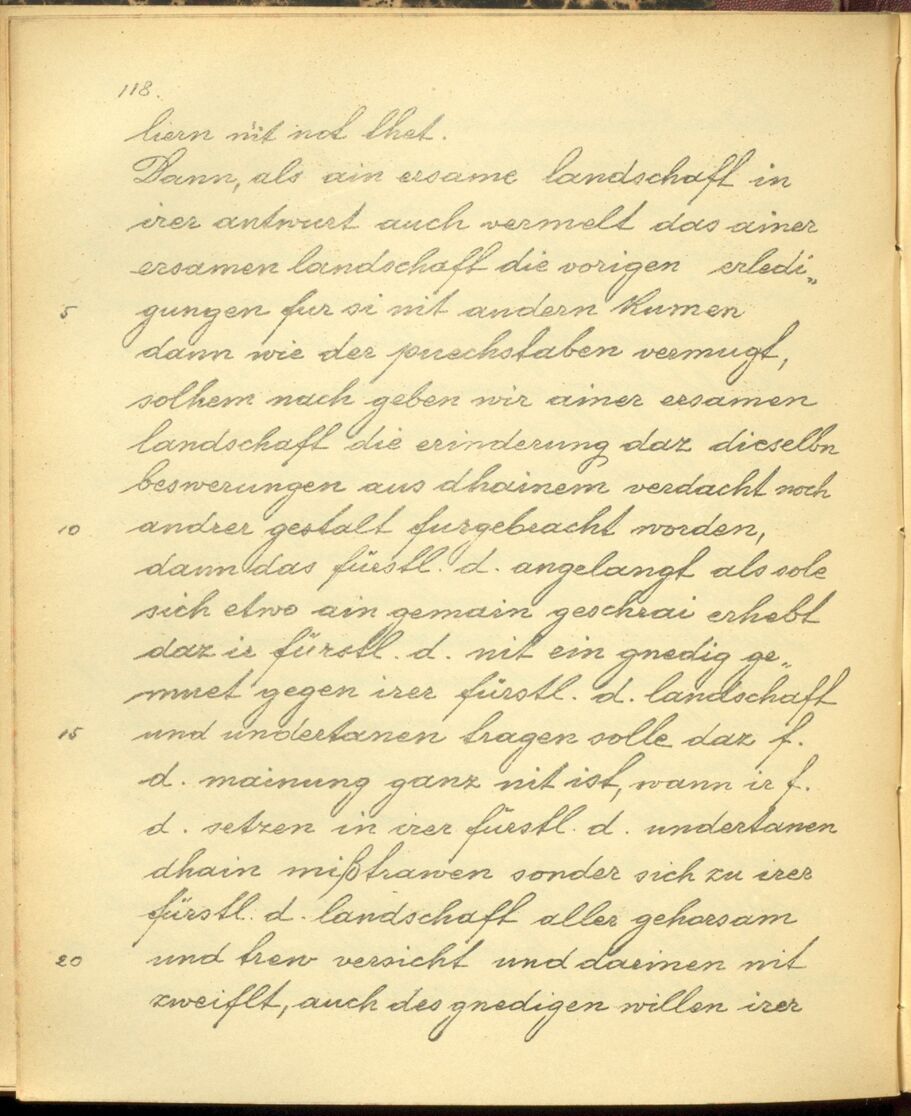 118.
liern nit not thet.
Dann, als ain ersame landschaft in
irer antwurt auch vermelt das ainer
ersamen landschaft die vorigen erledi„
5 gungen fur si nit andern kumen
dann wie der puechstaben vermugt,
solhem nach geben wir ainer ersamen
landschaft die erinderung daz dieselbn
beswerungen aus dhainem verdacht noch
10 andrer gestalt furgebracht worden,
dann das fürstl. d. angelangt als sole
sich etwo ain gemain geschrai erhebt
daz ir fürstl. d. nit ein gnedig ge„
muet gegen irer fürstl. d. landschaft
15 und undertanen tragen solle daz f.
d. mainung ganz nit ist, wann ir f.
d. setzen in irer fürstl. d. undertanen
dhain mißtrawen sonder sich zu irer
fürstl. d. landschaft aller gehorsam
20 und trew versicht und darinnen nit
zweiflt, auch des gnedigen willen irer